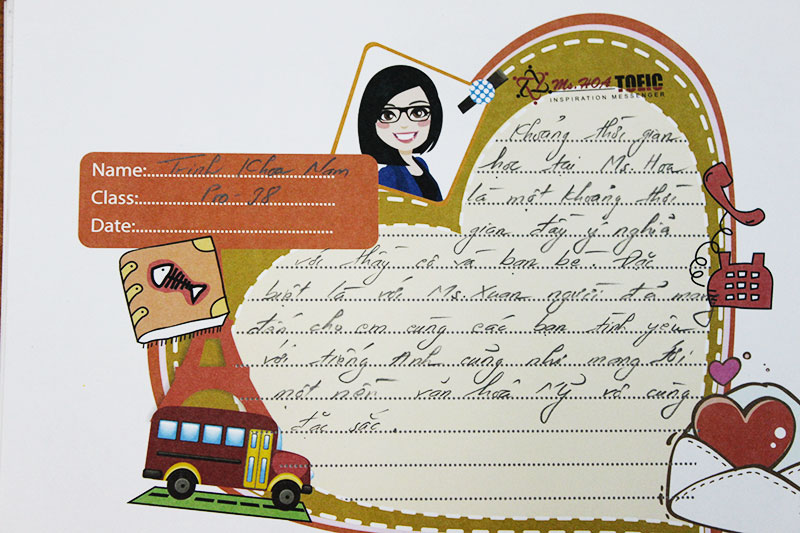 Ms. HOA TOEIC
INSPIRATION MESSENGER
Name: Trinh Khoa Nam
Class: Pro-98
Date:
Khoảng thời gian
học tại Ms. Hoa
là một khoảng thời
gian đầy ý nghĩa
với thầy cô và bạn bè. Đặc
biệt là với Ms. Xuan người đã mang
đến cho em cùng các bạn tình yêu
với tiếng Anh cũng như mang tới
một nền văn hoá Mỹ vô cùng
đặc sắc.